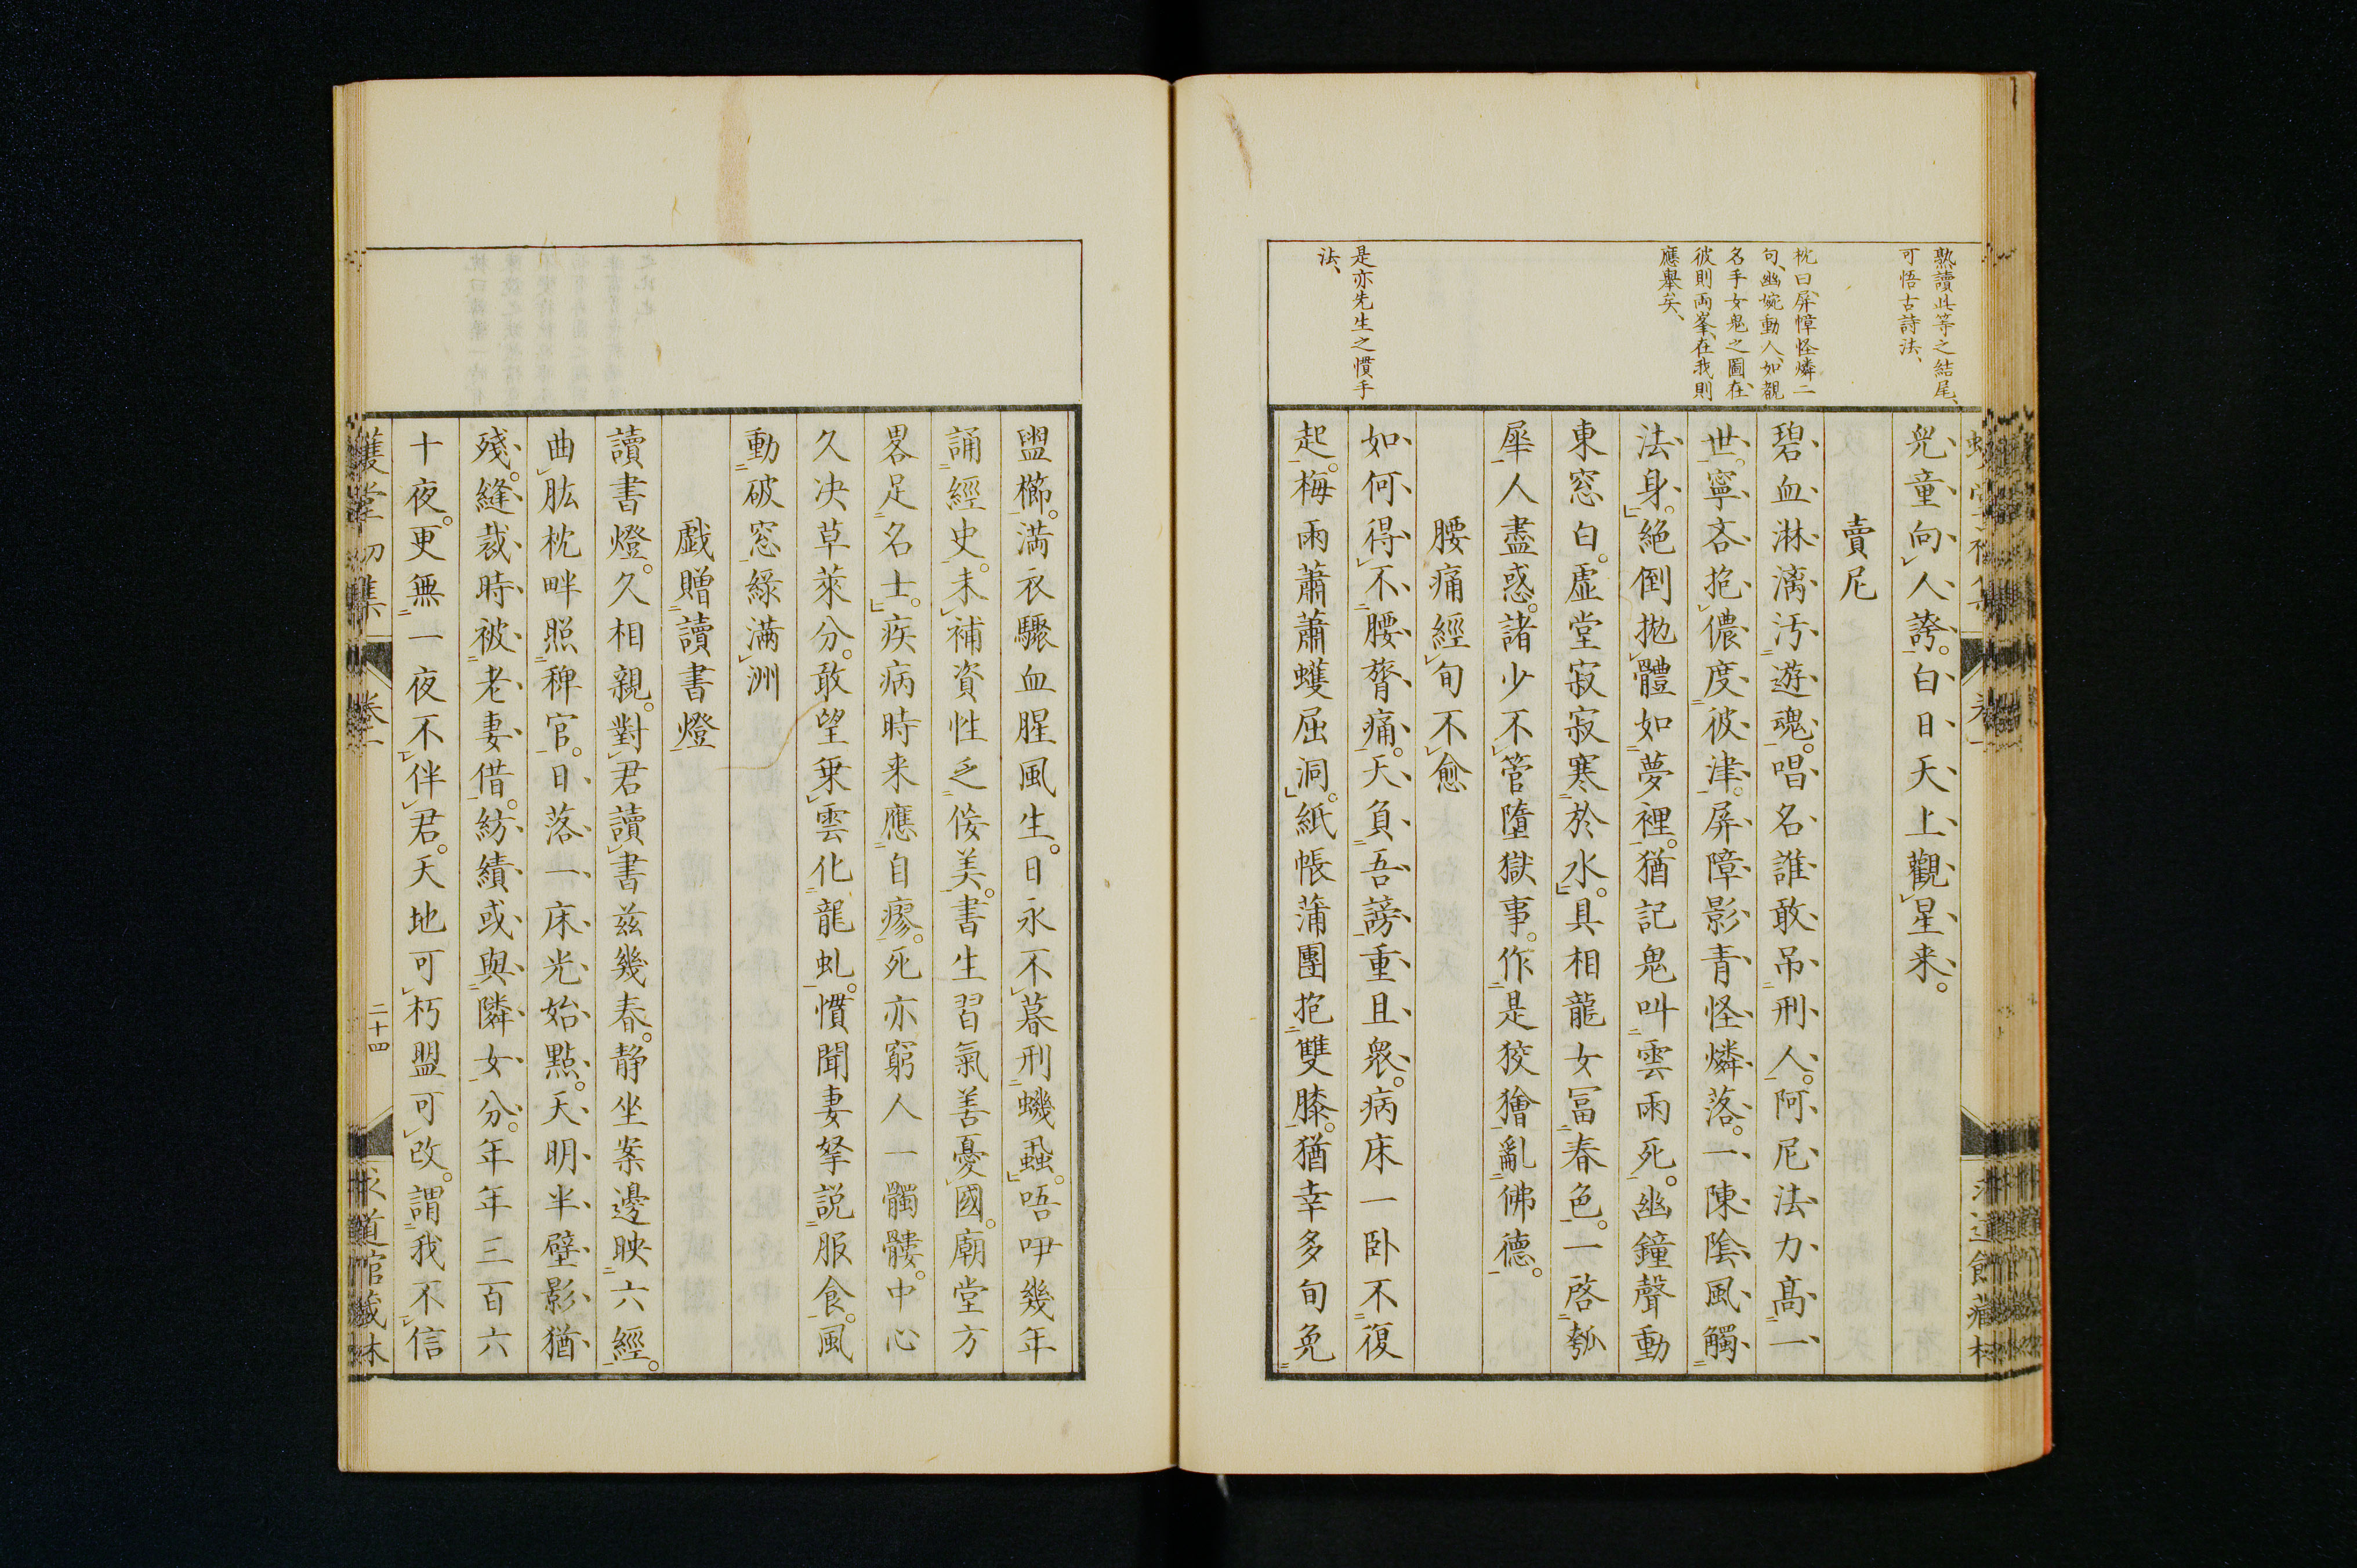 熟讀此等之結尾、
可悟古詩法、
枕曰、屏幛怪燐二
句、幽婉動人、如覩
名手女鬼之圖、在
彼則兩峯、在我則
應舉矣、
是亦先生之慣手
法、
兒童向人誇。白日天上觀星来。
賣尼
碧血淋漓汚遊魂。唱名誰敢吊刑人。阿尼法力高一
世。寧吝抱儂度彼津。屏障影青怪燐落。一陳陰風觸
法身。絶倒拋體如夢裡。猶記鬼叫雲雨死。幽鐘聲動
東窓白。虛堂寂寂寒於水。具相龍女冨春色。一啓瓠
犀人盡惑。諸少不管墮獄事。作是狡獪亂佛德。
腰痛經旬不愈
如何得不腰膂痛。天負吾謗重且衆。病床一臥不復
起。梅雨蕭蕭蠖屈洞。紙帳蒲團抱雙膝。猶幸多旬免
盥櫛。満衣驟血腥風生。日永不暮刑蟣蝨。唔咿幾年
誦經史。未補資性乏倭美。書生習氣善憂國。廟堂方
畧足名士。疾病時来應自瘳。死亦窮人一髑髏。中心
久决草萊分。敢望乗雲化龍虬。慣聞妻拏説服食。風
動破窓綠満洲
戯贈讀書燈
讀書燈。久相親。對君讀書玆幾春。静坐案邊映六經。
曲肱枕畔照稗官。日落一床光始點。天明半壁影猶
殘。縫裁時被老妻借。紡績或與隣女分。年年三百六
十夜。更無一夜不伴君。天地可朽盟可改。謂我不信
蠖堂初集
卷一
二十四
求道館藏梓